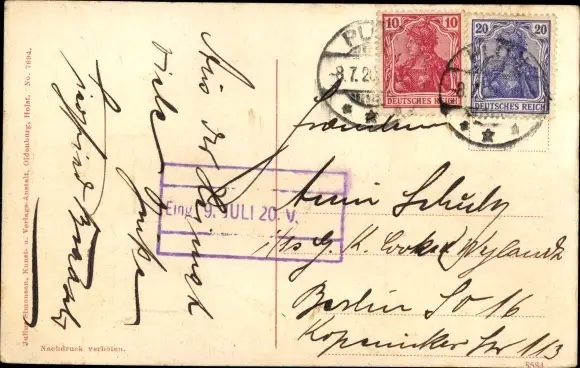 Aus der Heimat
viele Grüße
Siegfried
Julius Simonsen, Kunst- u. Verlags-Anstalt, Oldenburg, Holst. No. 7604.
Nachdruck verboten.
PL
-8.7.20
10 10
DEUTSCHES REICH
20 20
DEUTSCHES REICH
-8.
Eing. 9. JULI 20. V.
Fräulein
Anni Schulz
G. K. Cooke & Wylandt
Berlin SO 16
Köpenicker Str 113